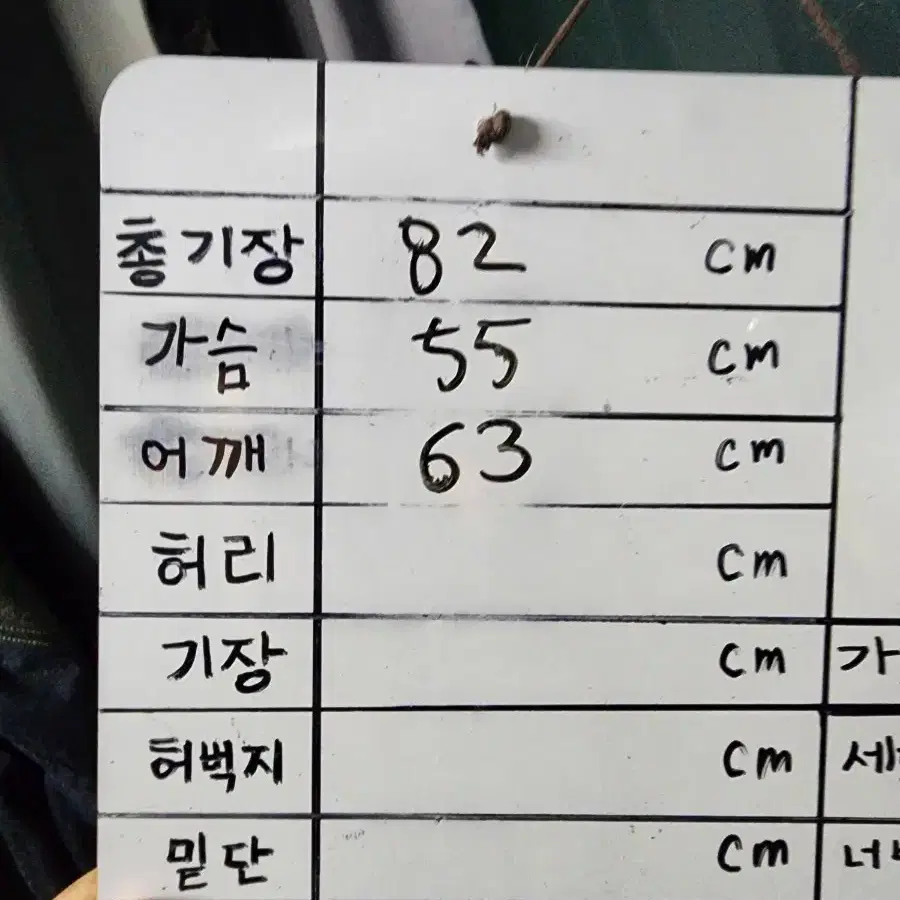 총기장 82 cm
가슴 55 cm
어깨 63 cm
허리 cm
기장 cm
허벅지 cm
밑단 cm